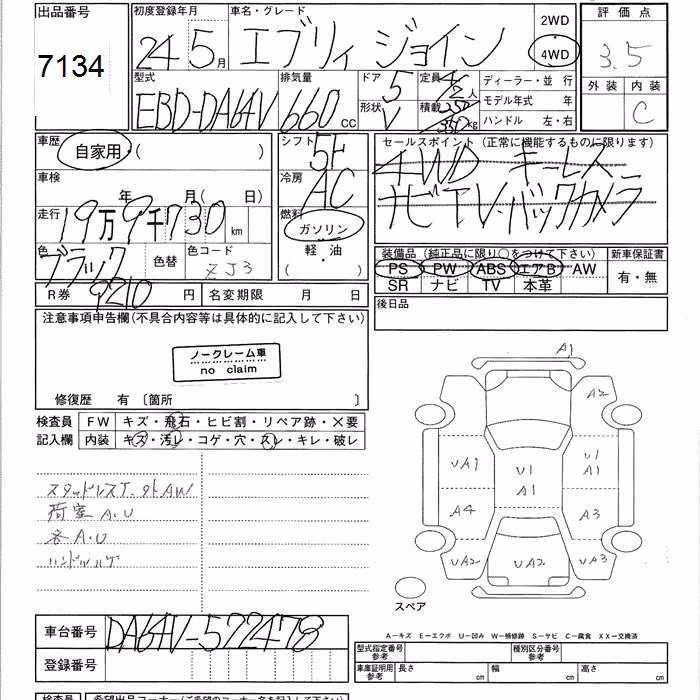 出品番号 初度登録年月 車名・グレード 2WD 評価点
7134 24 5月 エブリィ ジョイン 4WD 3.5
型式 排気量 ドア 5 定員 人 ディーラー・並行 外装 内装
EBD-DA64V 660 CC 形状 V 積載 kg モデル年式 年 C
ハンドル 左・右
車歴 自家用・( ) シフト 5F セールスポイント(正常に機能するものに限ります)
車検 年 月( ) 冷房 AC 4WD キーレス
走行 19万9千730km 燃料 ガソリン・軽・油 ( ) ナビTV・バックカメラ
色 ブラック 色替 色コード ZJ3 装備品(純正品に限り○をつけて下さい) 新車保証書
PS PW ABS エアB AW 有・無
R券 9210円 名変期限 月 日 SR ナビ TV 本革
注意事項申告欄(不具合内容等は具体的に記入して下さい) 後日品
ノークレーム車
no claim
修復歴 有〔箇所 〕
検査員 FW キズ・飛石・ヒビ割・リペア跡・×要
記入欄 内装 キズ・汚レ・コゲ・穴・スレ・キレ・破レ
A1
A2
UA1 U1 A1 U1 A1
スタッドレスT・外AW
A4 A3
荷室A.U
各A.U
ハンドルハゲ
UA2 UA2 UA3
スペア
車台番号 DA64V-522478
A-キズ E-エクボ U-凹み W-補修跡 S-サビ C-腐食 XX-交換済
登録番号 型式指定番号 参考 種別区分番号 参考
車庫証明用 参考 長さ cm 幅 cm 高さ cm
検査員 希望出品コーナー(ご希望のコーナー名を記入して下さい)